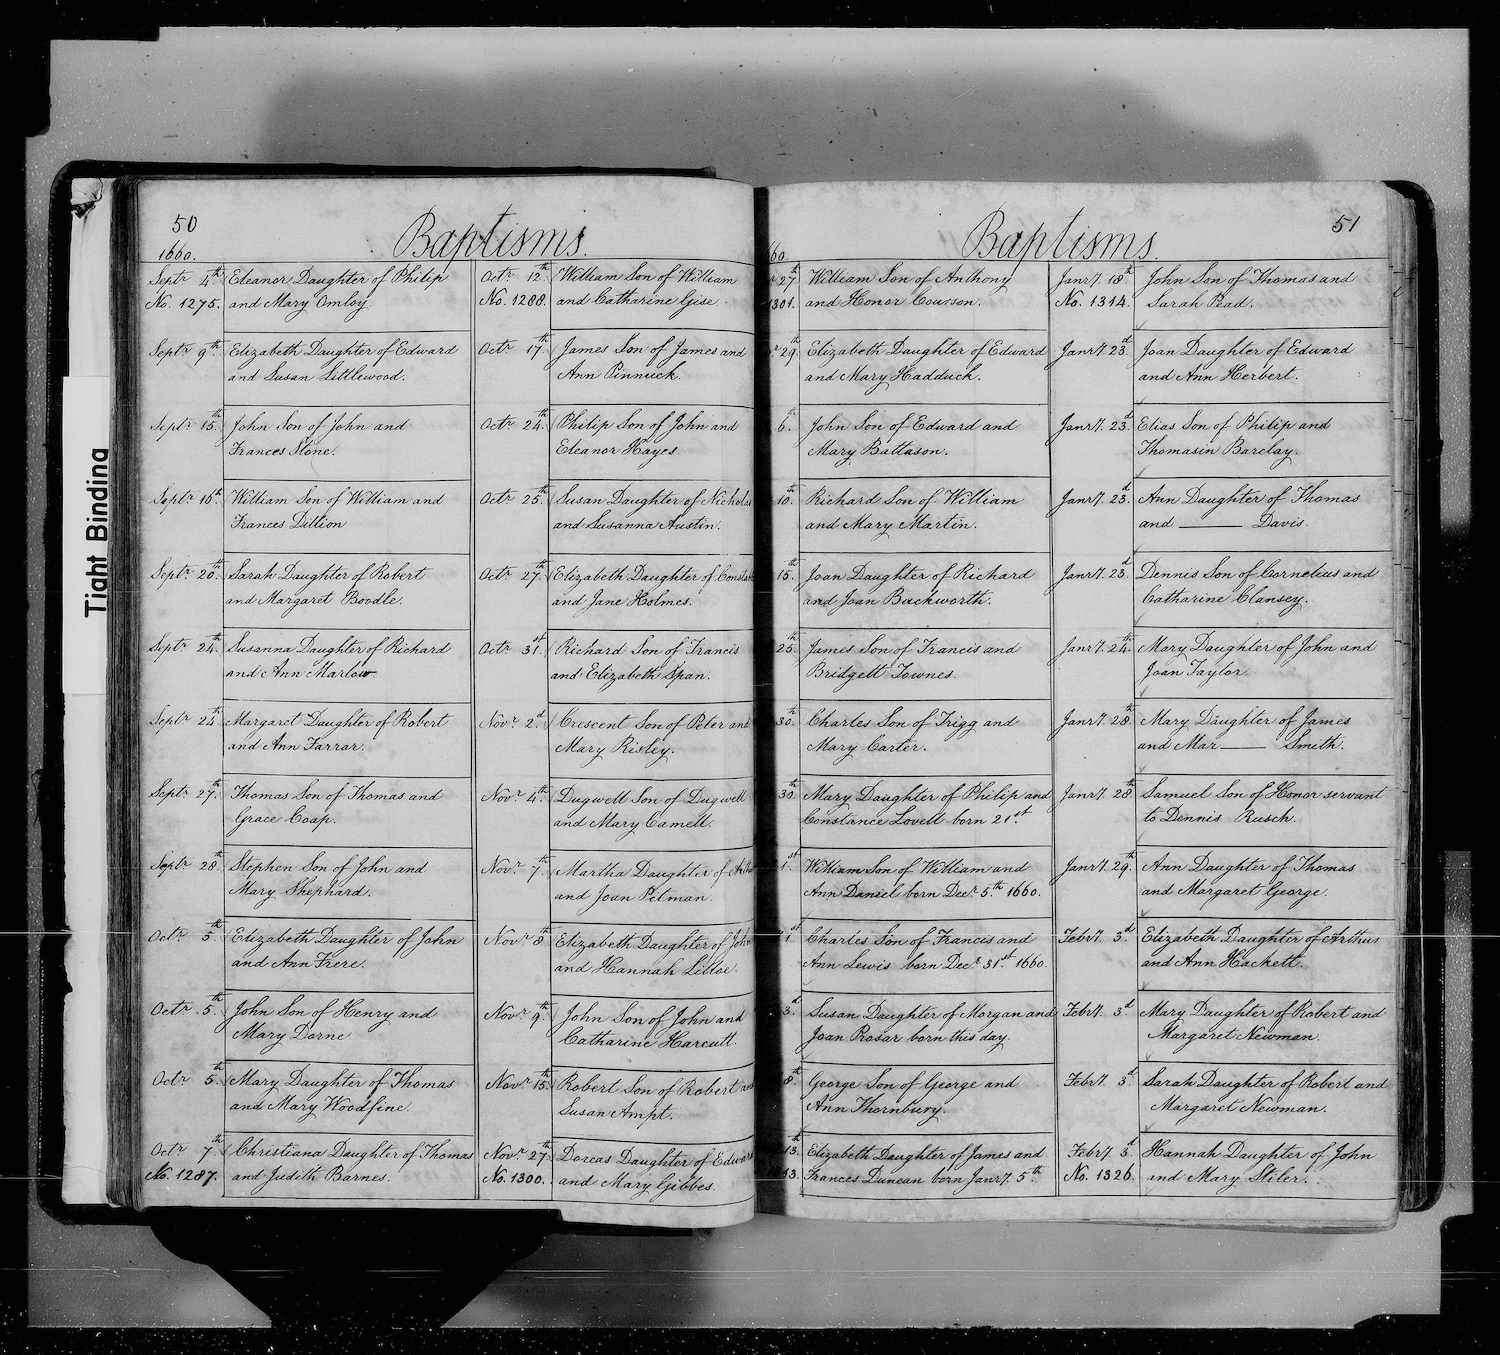 Tight Binding
50
Baptisms.
1660.
Septr 4th Eleanor Daughter of Philip
No. 1275. and Mary Omloy
Septr 9th Elizabeth Daughter of Edward
and Susan Littlewood.
Septr 15th John Son of John and
Frances Stone.
Septr 16th William Son of William and
Frances Dillion
Septr 20th Sarah Daughter of Robert
and Margaret Boodle.
Septr 24th Susanna Daughter of Richard
and Ann Marlow
Septr 24th Margaret Daughter of Robert
and Ann Farrar.
Septr 27th Thomas Son of Thomas and
Grace Coap.
Septr 28th Stephen Son of John and
Mary Shephard.
Octr 5th Elizabeth Daughter of John
and Ann Frere.
Octr 5th John Son of Henry and
Mary Dorne
Octr 5th Mary Daughter of Thomas
and Mary Woodfine.
Octr 7th Christiana Daughter of Thomas
No. 1287. and Judith Barnes.
Octr 12th William Son of William
No. 1288. and Catharine Gise.
Octr 17th James Son of James and
Ann Pinnuck.
Octr 24th Philip Son of John and
Eleanor Hayes.
Octr 25th Susan Daughter of Nicholas
and Susanna Austin.
Octr 27th Elizabeth Daughter of
and Jane Holmes.
Octr 31st Richard Son of Francis
and Elizabeth Span.
Novr 2d Crescent Son of Peter and
Mary Risley.
Novr 4th Dugwell Son of Dugwell
and Mary Camell.
Novr 7th Martha Daughter of
and Joan Petman.
Novr 8th Elizabeth Daughter of John
and Hannah Littoe.
Novr 9th John Son of John and
Catharine Harcutt.
Novr 15th Robert Son of Robert and
Susan Ampt.
Novr 27th Dorcas Daughter of Edward
No. 1300. and Mary Gibbes.
51
Baptisms.
60
27th William Son of Anthony
1301. and Honor Courson.
29th Elizabeth Daughter of Edward
and Mary Hadduck.
6th John Son of Edward and
Mary Battason.
10th Richard Son of William
and Mary Martin.
15th Joan Daughter of Richard
and Joan Buckworth.
25th James Son of Francis and
Bridgett Townes.
30th Charles Son of Trigg and
Mary Carter.
30th Mary Daughter of Philip and
Constance Lovell born 21st
1st William Son of William and
Ann Daniel born Decr 5th 1660.
1st Charles Son of Francis and
Ann Lewis born Decr 31st 1660
3d Susan Daughter of Morgan and
Joan Rosar born this day.
8th George Son of George and
Ann Thornbury.
13th Elizabeth Daughter of James and
13. Frances Duncan born Janry. 5th
Janry. 18th John Son of Thomas and
No. 1314. Sarah Pead.
Janry. 23d Joan Daughter of Edward
and Ann Herbert.
Janry. 23d Elias Son of Philip and
Thomasin Barclay.
Janry. 23d Ann Daughter of Thomas
and ——— Davis.
Janry. 23d Dennis Son of Cornelius and
Catharine Clansey.
Janry. 24th Mary Daughter of John and
Joan Taylor.
Janry. 28th Mary Daughter of James
and Mar—— Smith.
Janry. 28th Samuel Son of Honor servant
to Dennis Rusch.
Janry. 29th Ann Daughter of Thomas
and Margaret George.
Febry. 3d Elizabeth Daughter of Arthur
and Ann Hackett.
Febry. 3d Mary Daughter of Robert and
Margaret Newman.
Febry. 3d Sarah Daughter of Robert and
Margaret Newman.
Febry. 3d Hannah Daughter of John
No. 1326. and Mary Stiler.